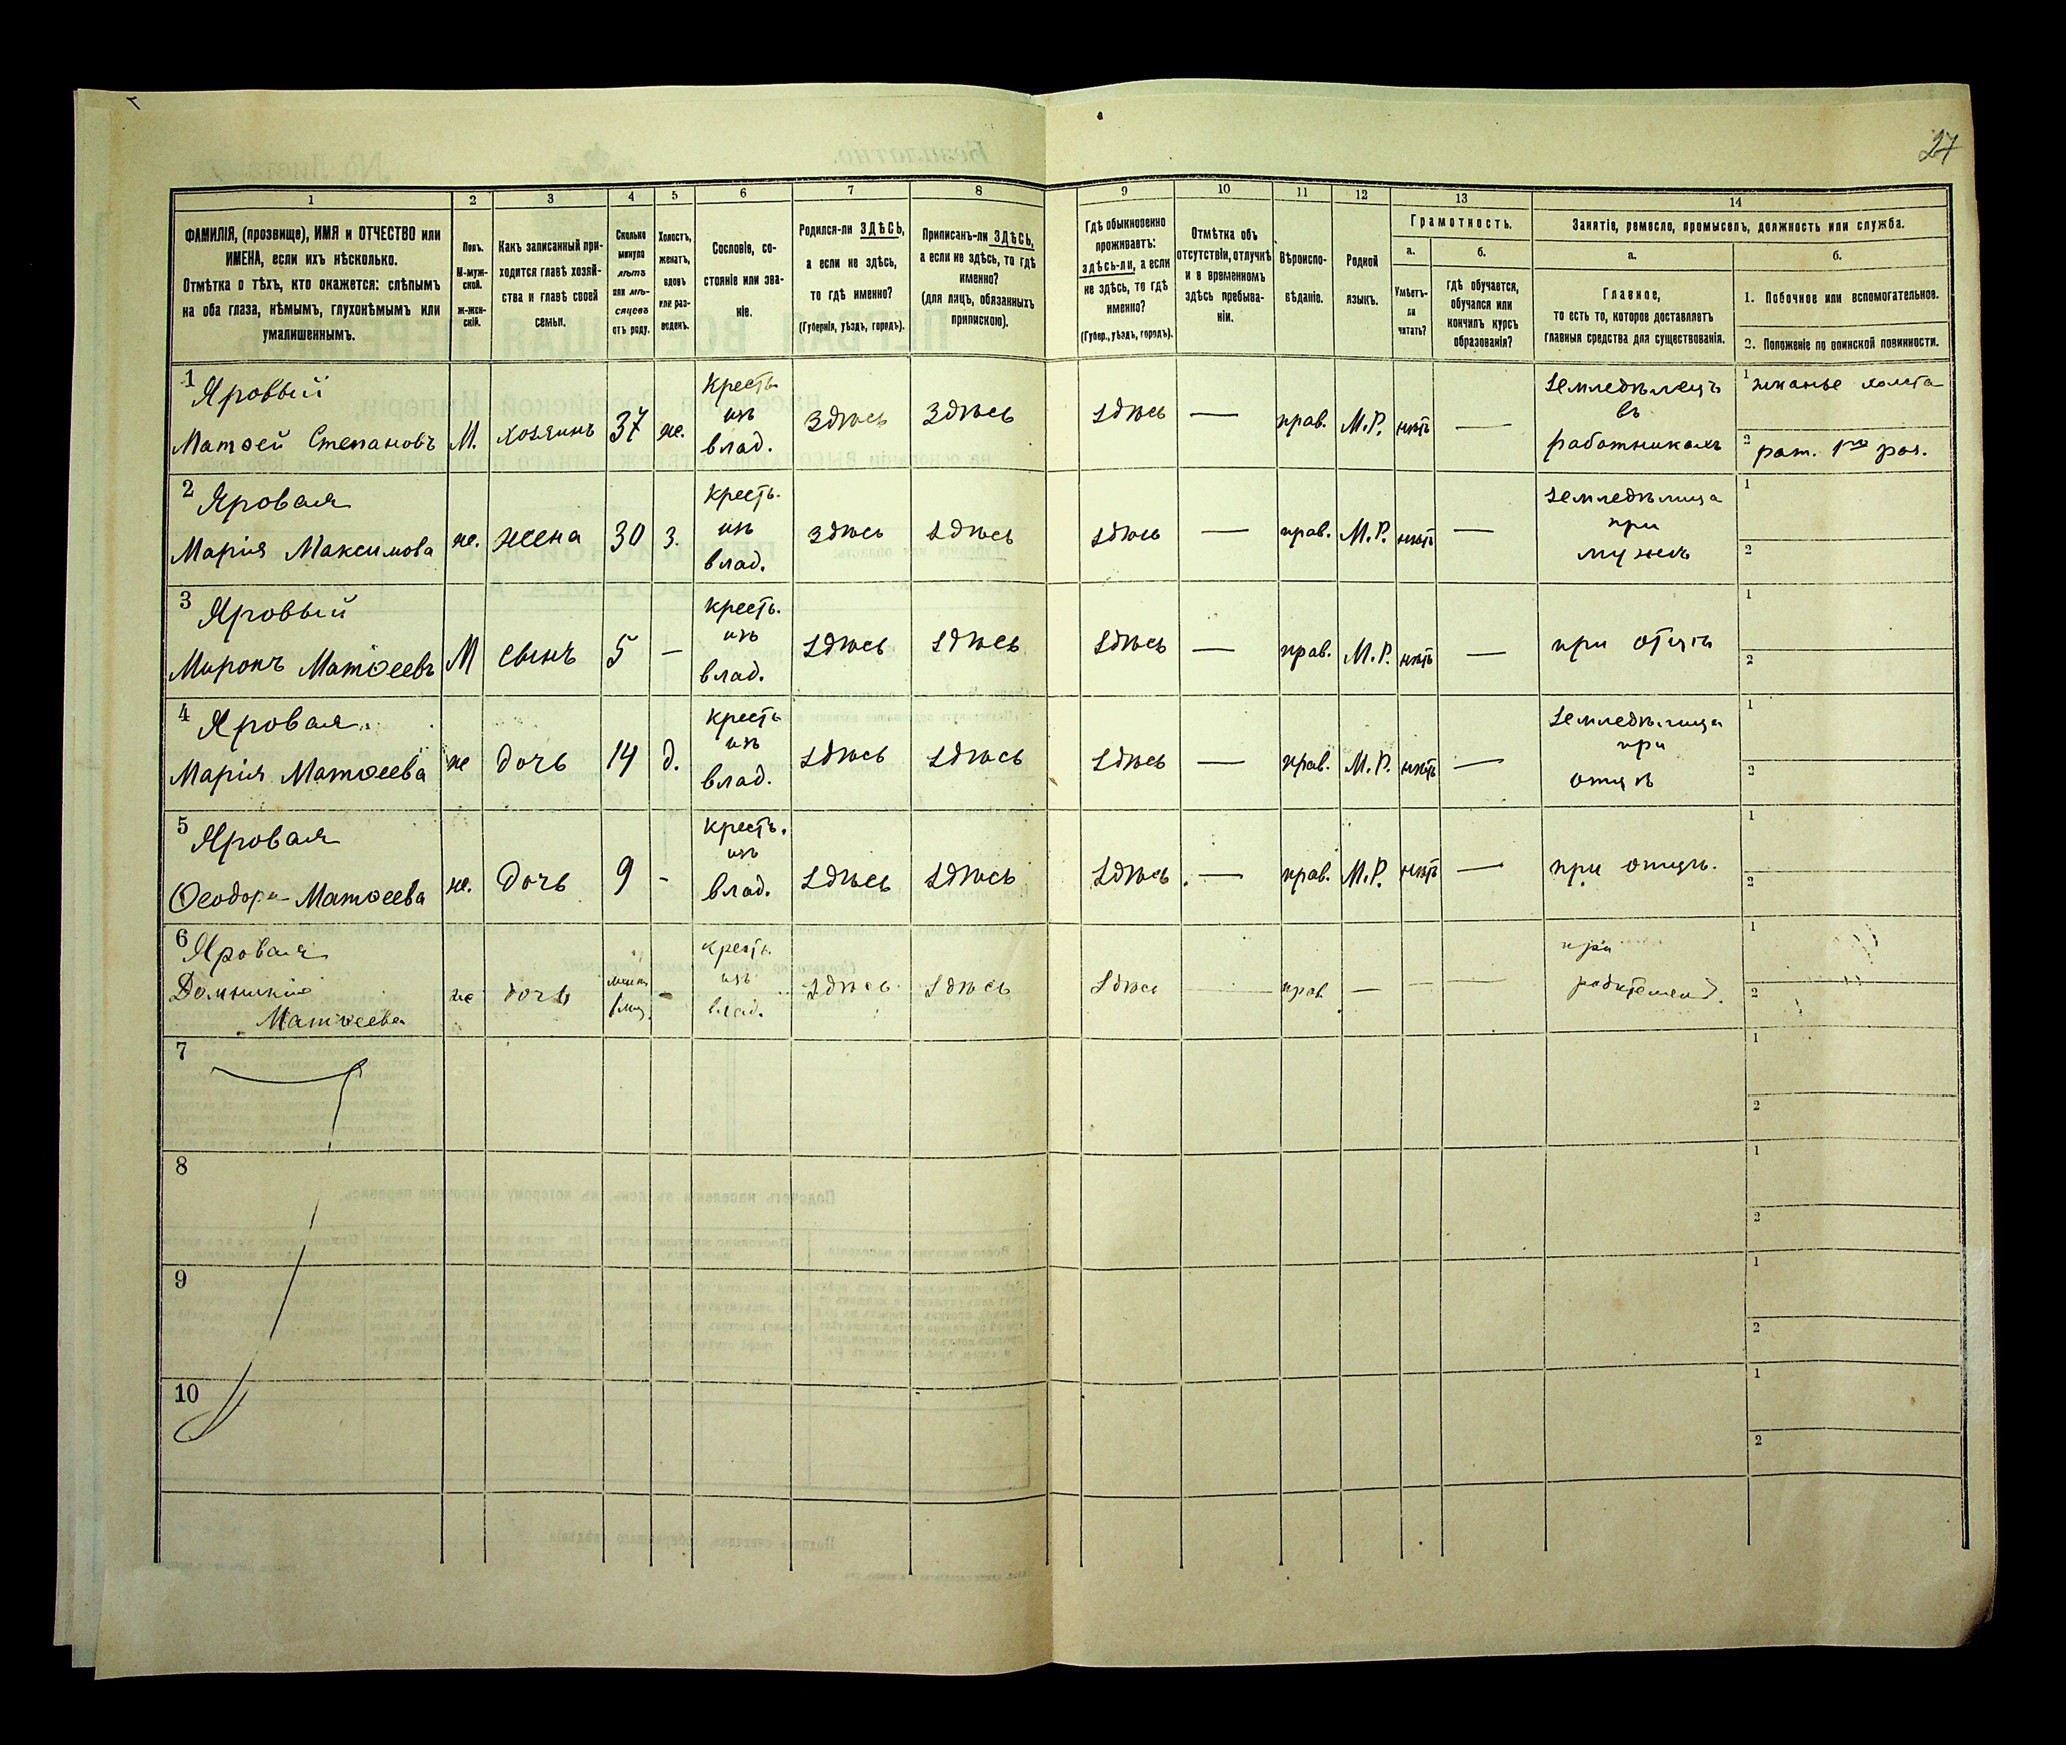 27
1
2
3
4
5
6
7
8
9
10
11
12
13
14
ФАМИЛІЯ, (прозвище), ИМЯ и ОТЧЕСТВО или
ИМЕНА, если ихъ нѣсколько.
Отмѣтка о тѣхъ, кто окажется: слѣпымъ
на оба глаза, нѣмымъ, глухонѣмымъ или
умалишеннымъ.
Полъ.
М-муж-
ской.
Ж-жен-
скій.
Какъ записанный при-
ходится главѣ хозяй-
ства и главѣ своей
семьи.
Сколько
минуло
лѣтъ
или мѣ-
сяцевъ
отъ роду.
Холостъ,
женатъ,
вдовъ
или раз-
веденъ.
Сословіе, со-
стояніе или зва-
ніе.
Родился-ли ЗДѢСЬ,
а если не здѣсь,
то гдѣ именно?
(Губернія, уѣздъ, городъ).
Приписанъ-ли ЗДѢСЬ,
а если не здѣсь, то гдѣ
именно?
(для лицъ, обязанныхъ
припискою).
Гдѣ обыкновенно
проживаетъ:
здѣсь-ли, а если
не здѣсь, то гдѣ
именно?
(Губер., уѣздъ, городъ).
Отмѣтка объ
отсутствіи, отлучкѣ
и о временномъ
здѣсь пребыва-
ніи.
Вѣроиспо-
вѣданіе.
Родной
языкъ.
Грамотность.
а.
Умѣетъ-
ли
читать?
б.
гдѣ обучается,
обучался или
кончилъ курсъ
образованія?
Занятіе, ремесло, промыселъ, должность или служба.
а.
Главное,
то есть то, которое доставляетъ
главныя средства для существованія.
б.
1. Побочное или вспомогательное.
2. Положеніе по воинской повинности.
1 Яровый
Матѳей Степановъ М. хозяинъ 37 же. кресть. изъ влад. здѣсь здѣсь здѣсь — прав. М.Р. нѣтъ — земледѣлецъ въ работникахъ
1 тканье холста
2 рат. 1го раз.
2 Яровая
Марія Максимова же. жена 30 з. кресть. изъ влад. здѣсь здѣсь здѣсь — прав. М.Р. нѣтъ — земледѣлица при мужѣ
1
2
3 Яровый
Миронъ Матѳеевъ М сынъ 5 — кресть. изъ влад. здѣсь здѣсь здѣсь — прав. М.Р. нѣтъ — при отцѣ
1
2
4 Яровая
Марія Матѳеева же дочь 14 д. кресть изъ влад. здѣсь здѣсь здѣсь — прав. М.Р. нѣтъ — земледѣлица при отцѣ
1
2
5 Яровая
Ѳеодора Матѳеева же. дочь 9 - кресть. изъ влад. здѣсь здѣсь здѣсь — прав. М.Р. нѣтъ — при отцѣ.
1
2
6 Яровая
Домникія
Матѳеева же дочь 1 мѣс. - кресть. изъ влад. здѣсь здѣсь здѣсь — прав — — — при
1
2
7
1
2
8
1
2
9
1
2
10
1
2